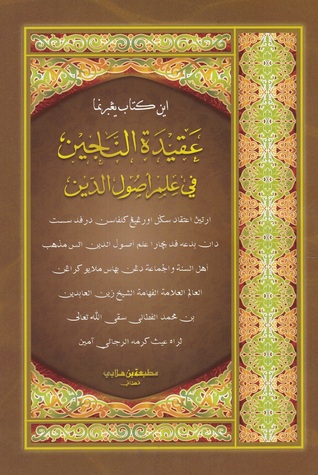 اين كتاب يڠبرنما
عقيدة الناجين
في علم أصول الدين
ارتين اعتقاد سكل اورڠيڠ كلفاسن درفد سست
دان بدعه فد بچارا علم اصول الدين اتس مذهب
أهل السنة والجماعة دڠن بهاس ملايو كراڠن
العالم العلامة الفهامة الشيخ زين العابدين
بن محمد الفطاني سقى الله تعالى
ثراه غيث كرمه الرجائي آمين
مطبعة بن هلابي
فطاني